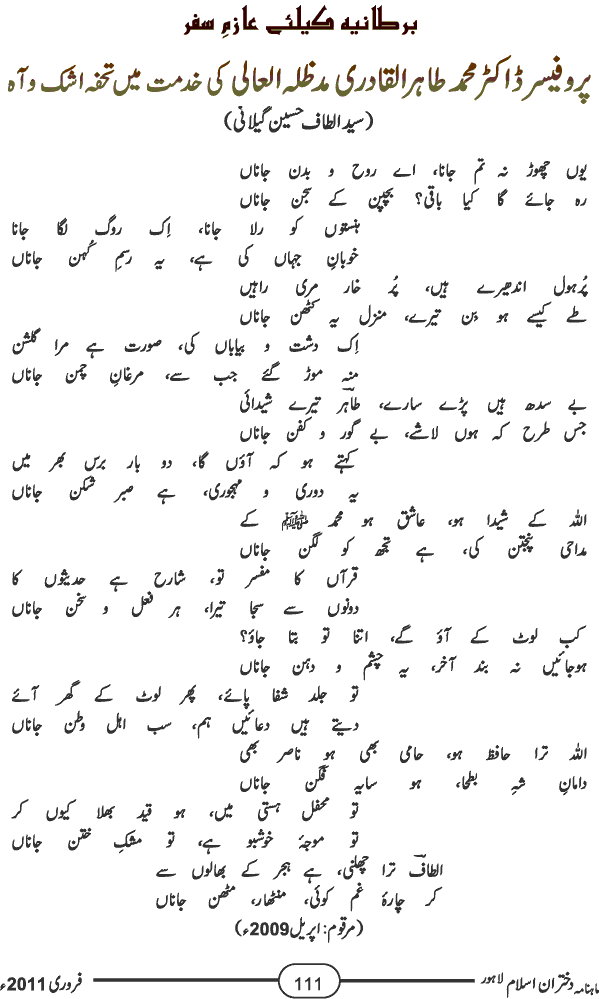 برطانیہ کیلئے عازمِ سفر
پروفیسر ڈاکٹر محمد طاہر القادری مدظلہ العالی کی خدمت میں تحفہ اشک و آہ
(سید الطاف حسین گیلانی)
یوں چھوڑ نہ تم جانا، اے روح و بدن جاناں
رہ جائے گا کیا باقی؟ بچپن کے سجن جاناں
ہنستوں کو رلا جانا، اِک روگ لگا جانا
خوبانِ جہاں کی ہے، یہ رسمِ کُہن جاناں
پُرہول اندھیرے ہیں، پُر خار مری راہیں
طے کیسے ہو بن تیرے، منزل یہ کٹھن جاناں
اِک دشت و بیاباں کی، صورت ہے مرا گلشن
منہ موڑ گئے جب سے، مرغانِ چمن جاناں
بے سدھ ہیں پڑے سارے، طاہرؔ تیرے شیدائی
جس طرح کہ ہوں لاشے، بے گور و کفن جاناں
کہتے ہو کہ آؤں گا، دو بار برس بھر میں
یہ دوری و مہجوری، ہے صبر شکن جاناں
اللہ کے شیدا ہو، عاشق ہو محمد ﷺ کے
مداحی پنجتن کی، ہے تجھ کو لگن جاناں
قرآں کا مفسر تو، شارح ہے حدیثوں کا
دونوں سے سجا تیرا، ہر فعل و سخن جاناں
کب لوٹ کے آؤ گے، اتنا تو بتا جاؤ؟
ہوجائیں نہ بند آخر، یہ چشم و دہن جاناں
تو جلد شفا پائے، پھر لوٹ کے گھر آئے
دیتے ہیں دعائیں ہم، سب اہل وطن جاناں
اللہ ترا حافظ ہو، حامی بھی ہو ناصر بھی
دامانِ شہِ بطحا، ہو سایہ فگن جاناں
تو محفل ہستی میں، ہو قید بھلا کیوں کر
تو موجۂ خوشبو ہے، تو مشکِ ختن جاناں
الطافؔ ترا چھلنی، ہے ہجر کے بھالوں سے
کر چارۂ غم کوئی، منٹھار، مٹھن جاناں
(مرقوم: اپریل 2009ء)
ماہنامہ دختران اسلام لاہور 111 فروری 2011ء